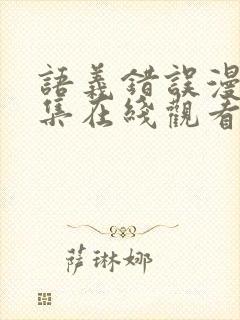 語義錯誤漫
集在綫觀看
萨琳娜